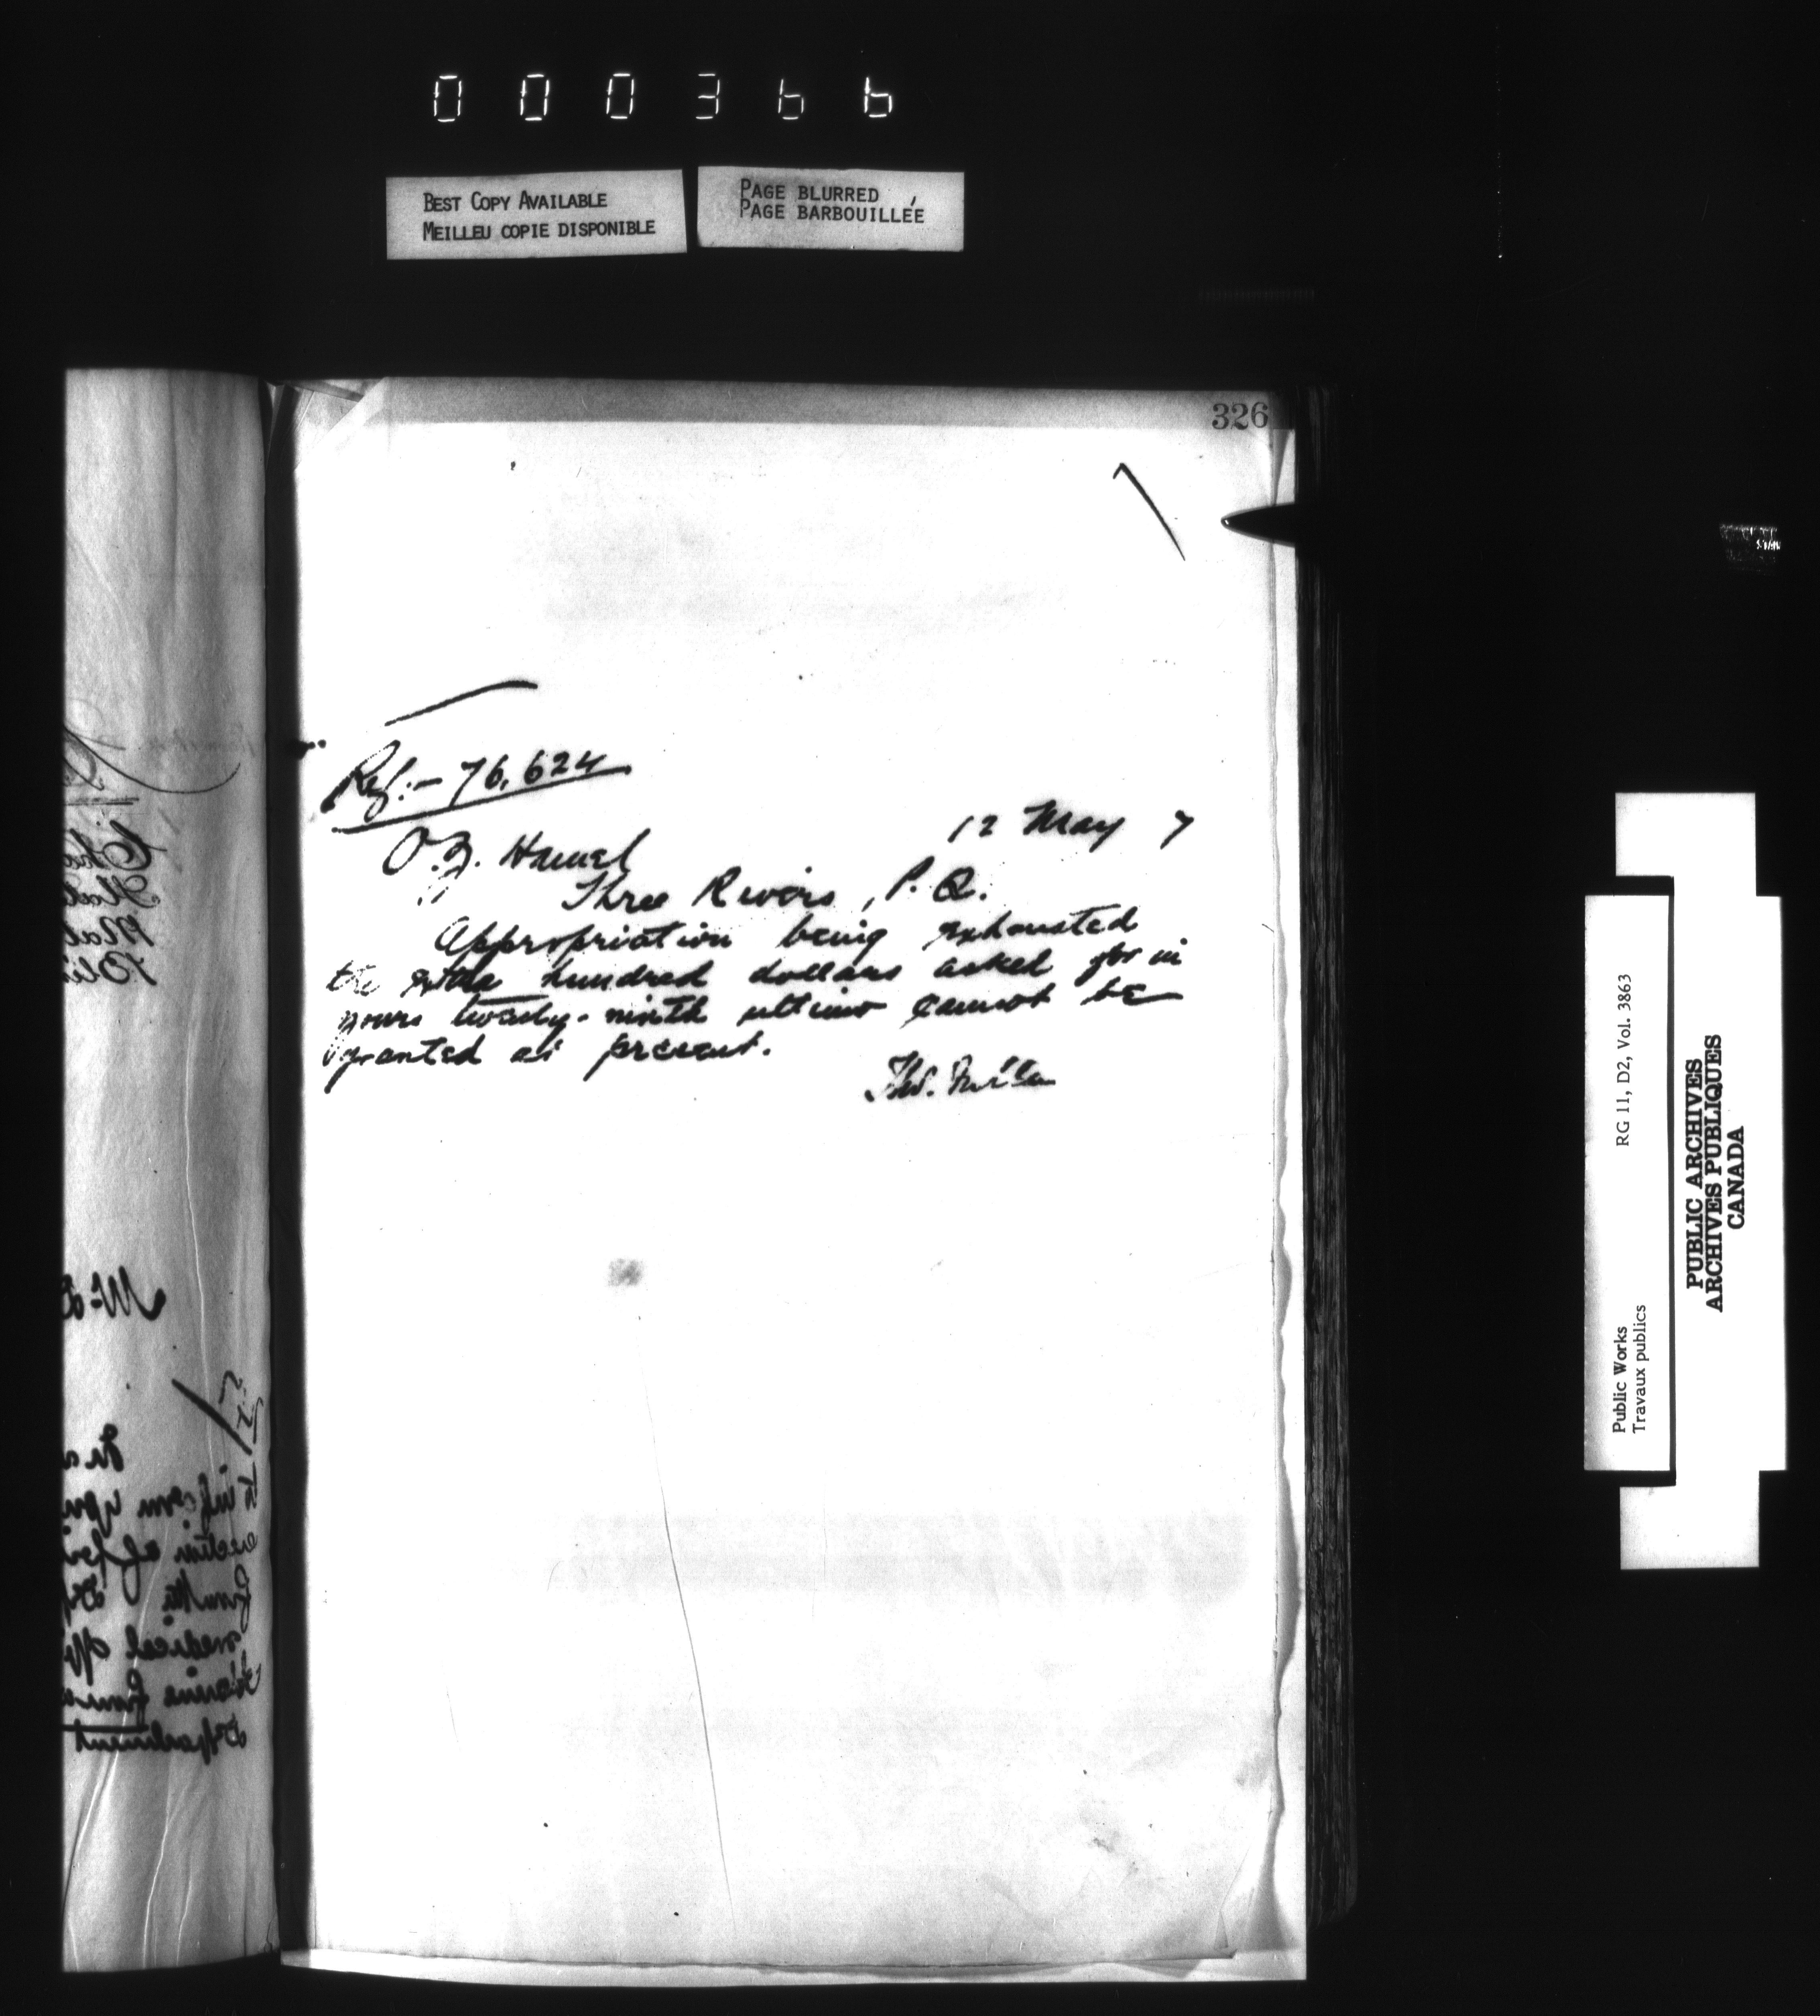 000366
BEST COPY AVAILABLE
MEILLEU COPIE DISPONIBLE
PAGE BLURRED
PAGE BARBOUILLÉE
326
Ref:- 76,624
12 May 7
O.Z. Hamel
Three Rivers, P.Q.
Appropriation being exhausted
the extra hundred dollars asked for in
yours twenty-ninth ultimo cannot be
granted at present.
RG 11, D2, Vol. 3863
Public Works
Travaux publics
PUBLIC ARCHIVES
ARCHIVES PUBLIQUES
CANADA